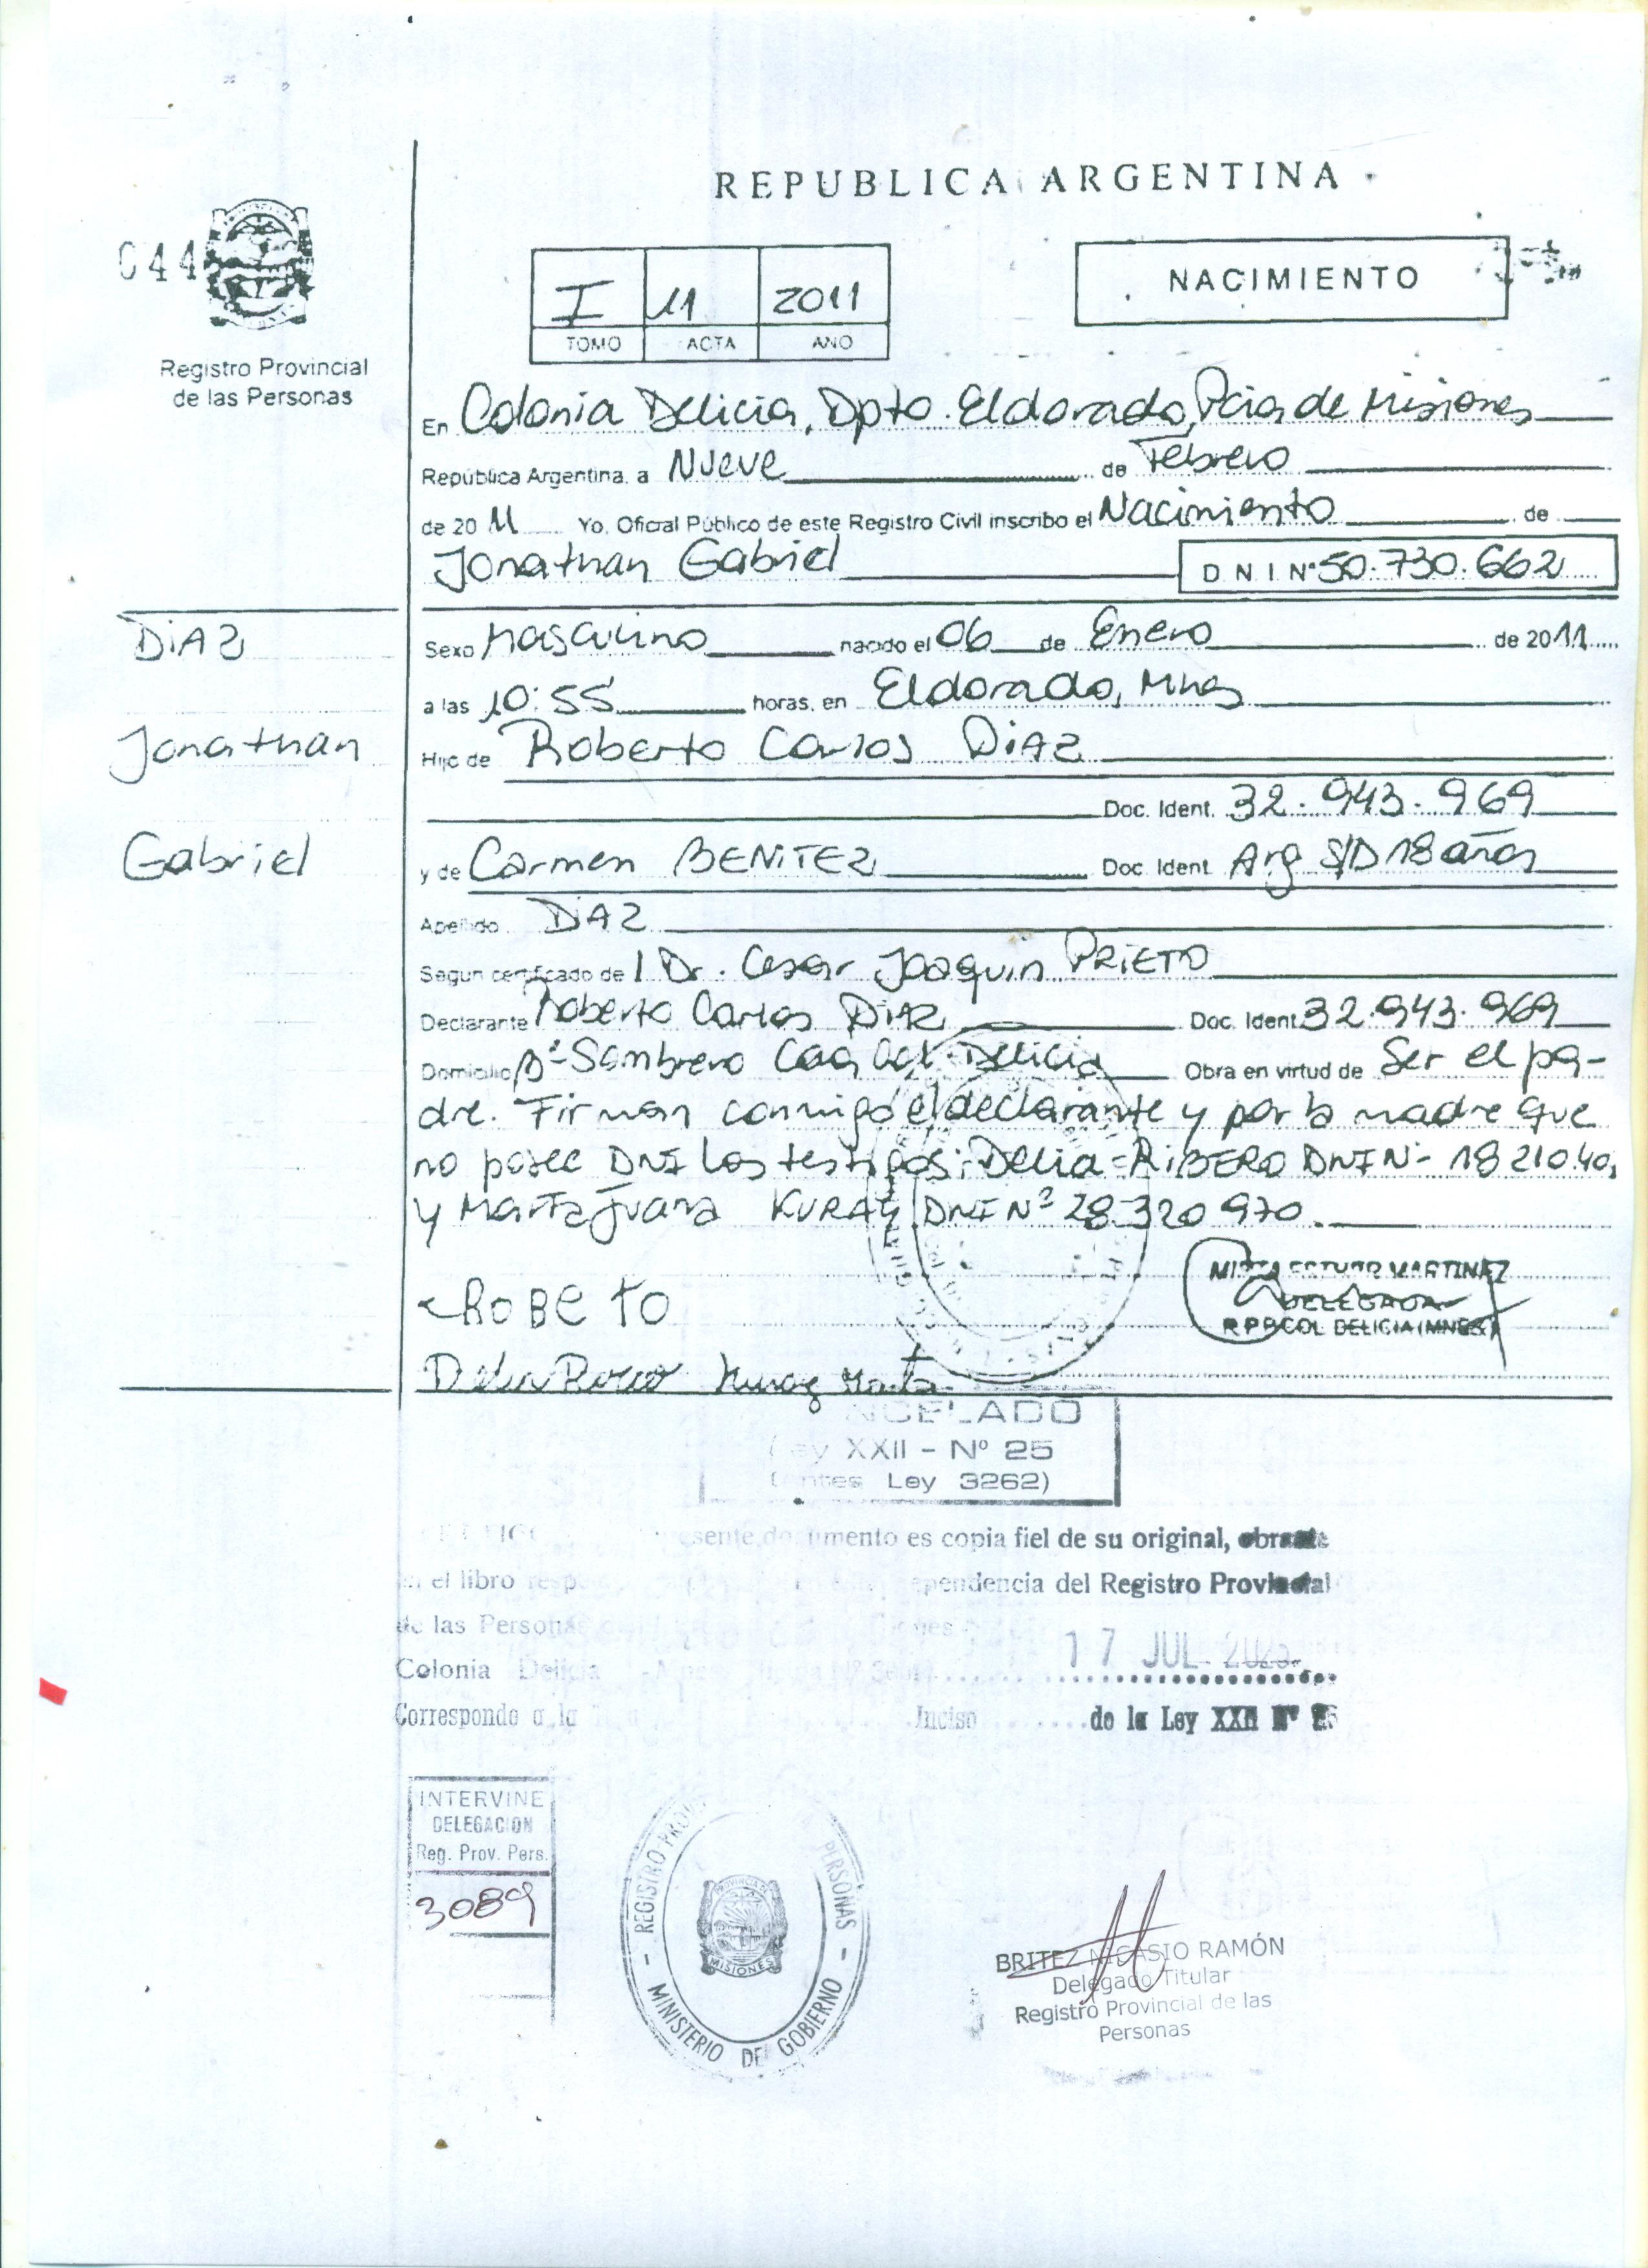 REPUBLICA ARGENTINA
044
I 11 2011
TOMO ACTA AÑO
NACIMIENTO
Registro Provincial
de las Personas
En Colonia Delicia, Dpto. Eldorado, Pcia de Misiones
República Argentina, a Nueve de Febrero
de 2011 Yo, Oficial Público de este Registro Civil inscribo el Nacimiento de
Jonathan Gabriel DNI Nº 50.730.662
DiAZ
Jonathan
Gabriel
Sexo Masculino nacido el 06 de Enero de 2011
a las 10:55 horas, en Eldorado, Mnes
Hijo de Roberto Carlos DiAZ
Doc. Ident. 32.943.969
y de Carmen BENiTEZ Doc. Ident. Arg S/D 18 años
Apellido DiAZ
Según certificado de l Dr. Cesar Joaquin PRiETO
Declarante Roberto Carlos DiAZ Doc. Ident. 32.943.969
Domicilio Bº Sombrero Col. Delicia Obra en virtud de Ser el pa-
dre. Firman conmigo el declarante y por la madre que
no posee DNI los testigos: Delia RiBERO DNI Nº 18210.40
y Marta Juana KURAY DNI Nº 28.320 970.
RoBeTo
MARTINEZ
DELEGADA
R.P.P. COL DELICIA (MNES)
NCELADO
Ley XXII - Nº 25
(antes Ley 3262)
sente documento es copia fiel de su original, obrante
en el libro ependencia del Registro Provincial
de las Personas
Colonia Delicia 17 JUL
Corresponde a la Inciso de la Ley XXII Nº 25
INTERVINE
DELEGACION
Reg. Prov. Pers.
3089
REGISTRO PERSONAS
MINISTERIO DE GOBIERNO
PROVINCIA
MISIONES
BRITEZ NICASIO RAMÓN
Delegado Titular
Registro Provincial de las
Personas